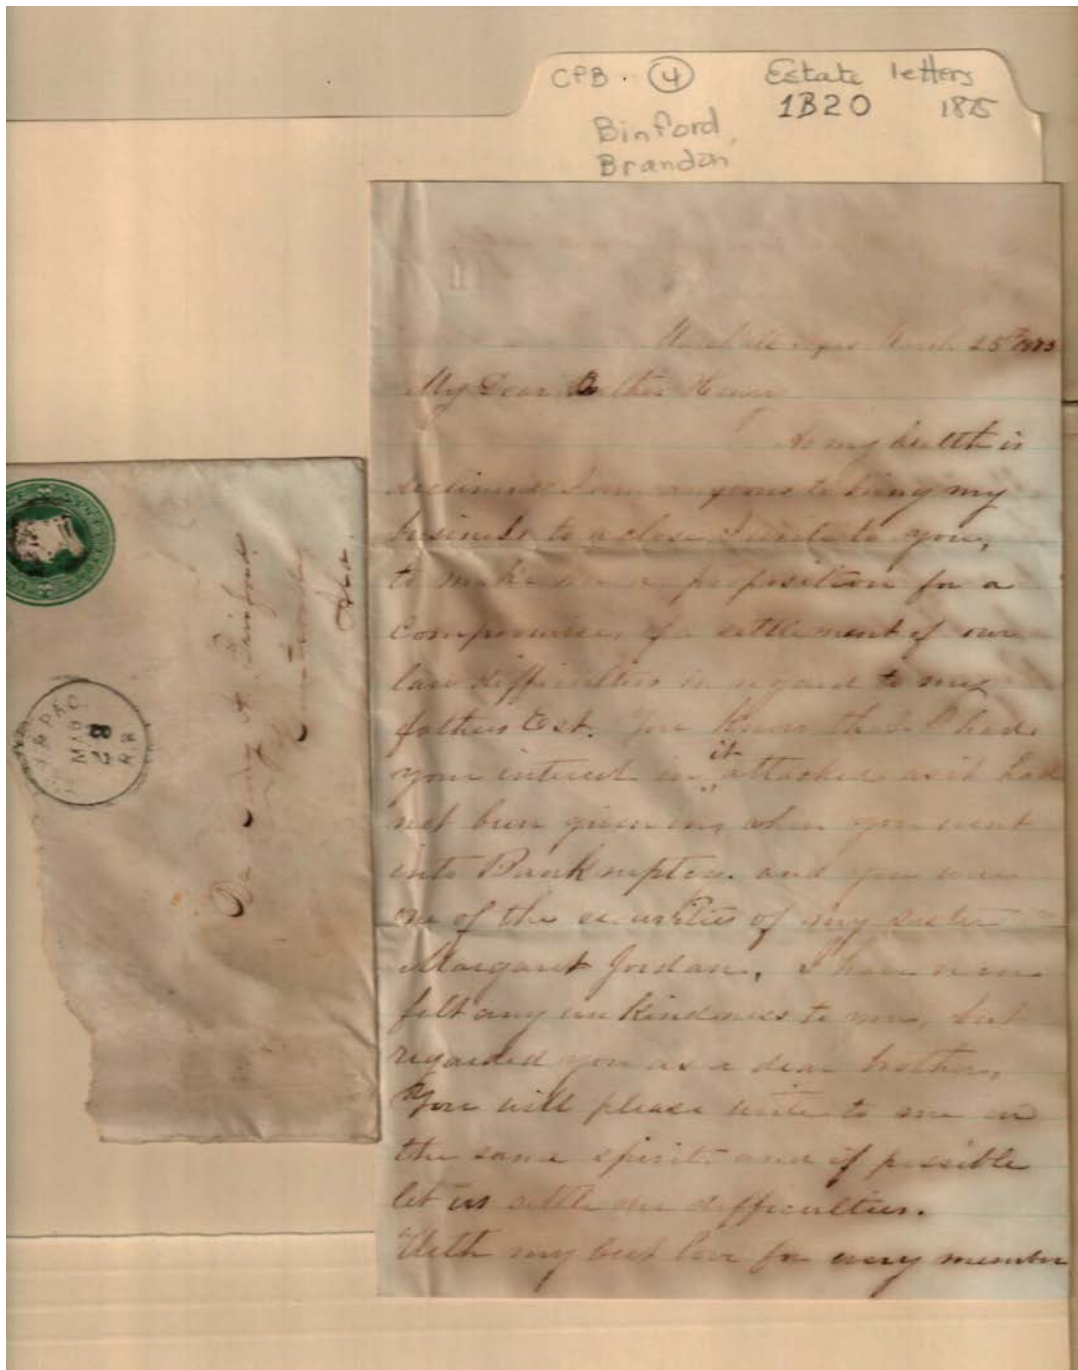 CPB. 4 Estate letters
1B20 1875
Binford,
Brandon
March 25th
My Dear Brother Henry
As my health is
declining I am anxious to bring my
business to a close I write to you,
to make you a proposition for a
compromise, of a settlement of our
law difficulties in regard to my
fathers Est. You know that I had
your interest in it attached as it had
not been given in, when you went
into Bankruptcy. and you was
one of the securities of my sister
Margaret Jordan. I have never
felt any unkindness to you, but
regarded you as a dear brother,
You will please write to me in
the same spirit and if possible
let us settle our difficulties.
With my best love for every member
Dr Henry A. Binford
Ala.
PAC.
MAR
R.R.